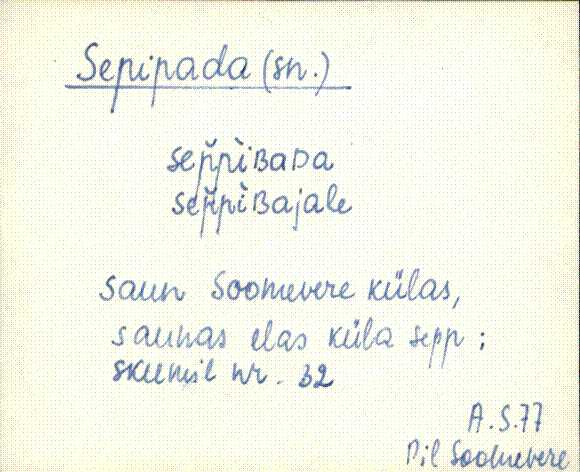 Sepipada (sn.)
sep̆p̀iʙaᴅa
sep̆p̀iʙajale
saun Soomevere külas,
saunas elas küla sepp ;
nr. 32
A.S. 77
Pil Soomevere